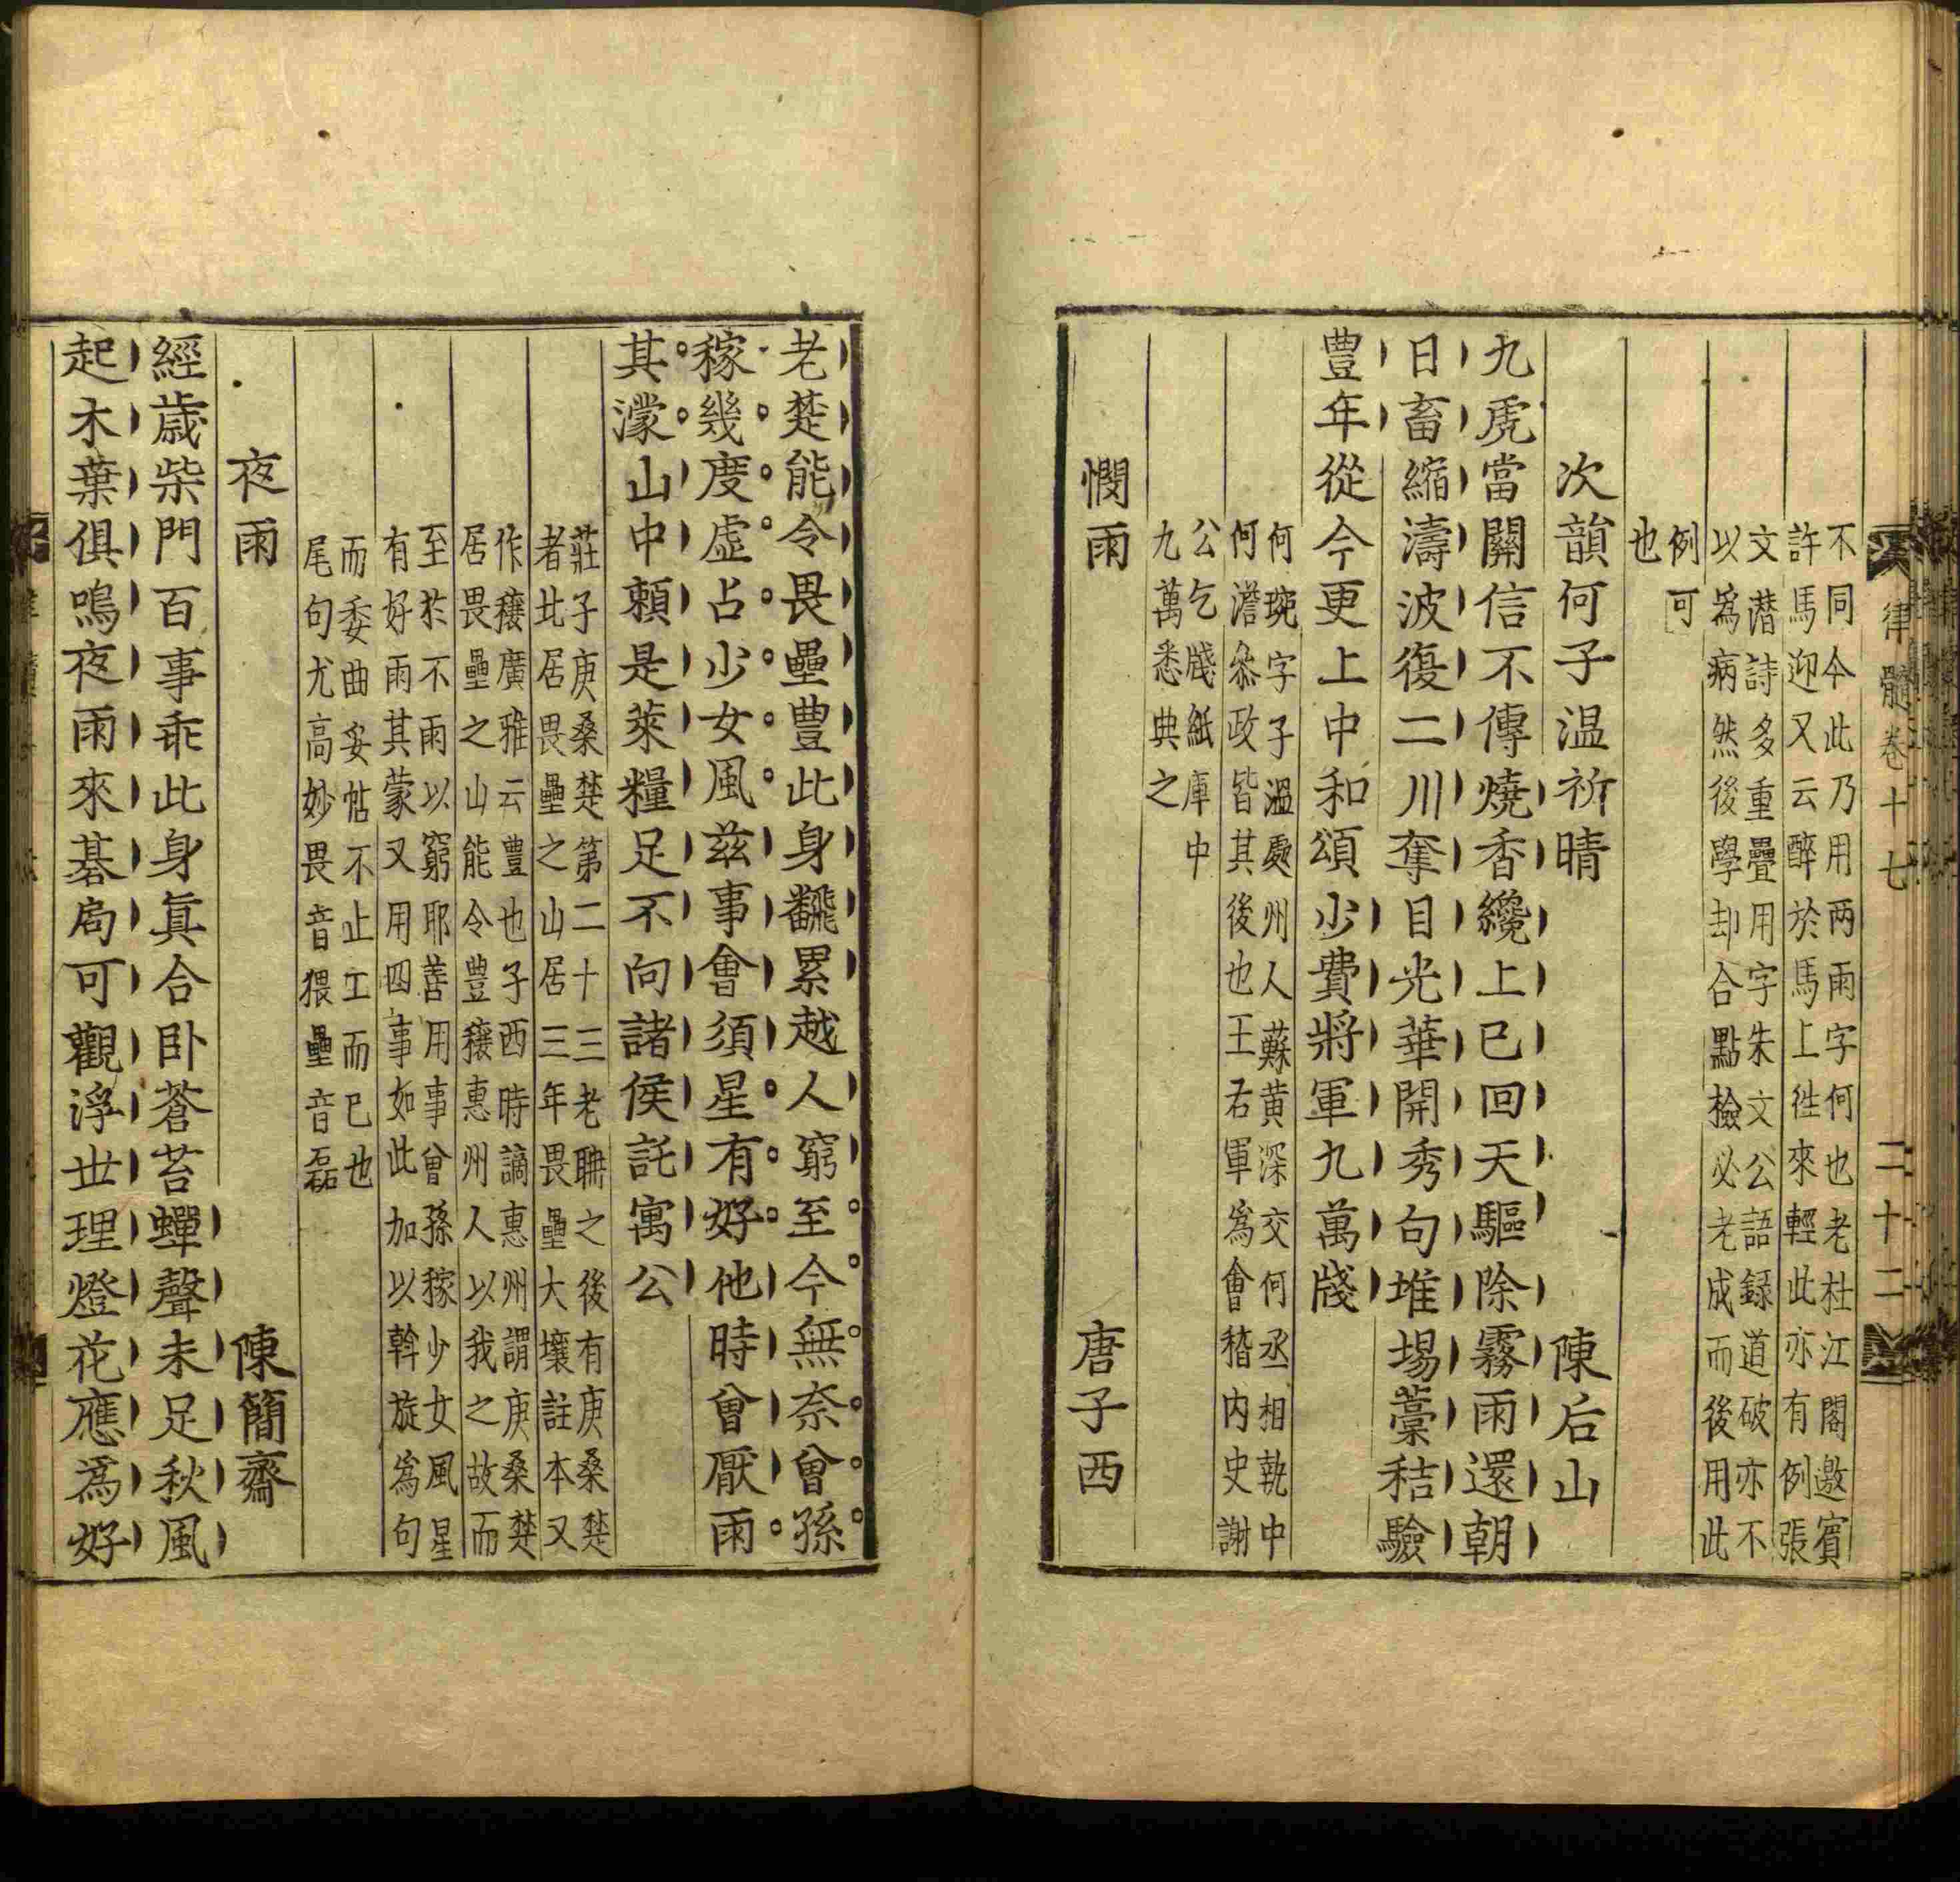 律髓卷十七 二十二
不同今此乃用两雨字何也老杜江閣邀賓
許馬迎又云醉於馬上徃來輕此亦有例張
文潜詩多重疊用字朱文公語録道破亦不
以爲病然後學却合點檢必老成而後用此
例可
也
次韻何子温祈晴 陳后山
九虎當關信不傳燒香纔上已回天驅除霧雨還朝
日畜縮濤波復二川奪目光華開秀句堆場藁秸驗
豊年從今更上中和頌少費將軍九萬牋
何琬字子温處州人蘇黄深交何丞相執中
何澹叅政皆其後也王右軍爲會稽内史謝
公乞牋紙庫中
九萬悉典之
憫雨 唐子西
老楚能令畏壘豊此身翻累越人窮至今無奈曾孫
稼幾度虚占少女風兹事會須星有好他時曾厭雨
其濛山中頼是萊糧足不向諸侯託寓公
莊子庚桑楚第二十三老聃之後有庚桑楚
者北居畏壘之山居三年畏壘大壤註本又
作穰廣雅云豊也子西時謫惠州謂庚桑楚
居畏壘之山能令豊穰惠州人以我之故而
至於不雨以窮耶善用事曾孫稼少女風星
有好雨其蒙又用四事如此加以斡旋爲句
而委曲妥帖不止工而已也
尾句尤高妙畏音猥壘音磊
夜雨 陳簡齋
經歳柴門百事乖此身眞合卧蒼苔蟬聲未足秋風
起木葉俱鳴夜雨來棊局可觀浮世理燈花應爲好